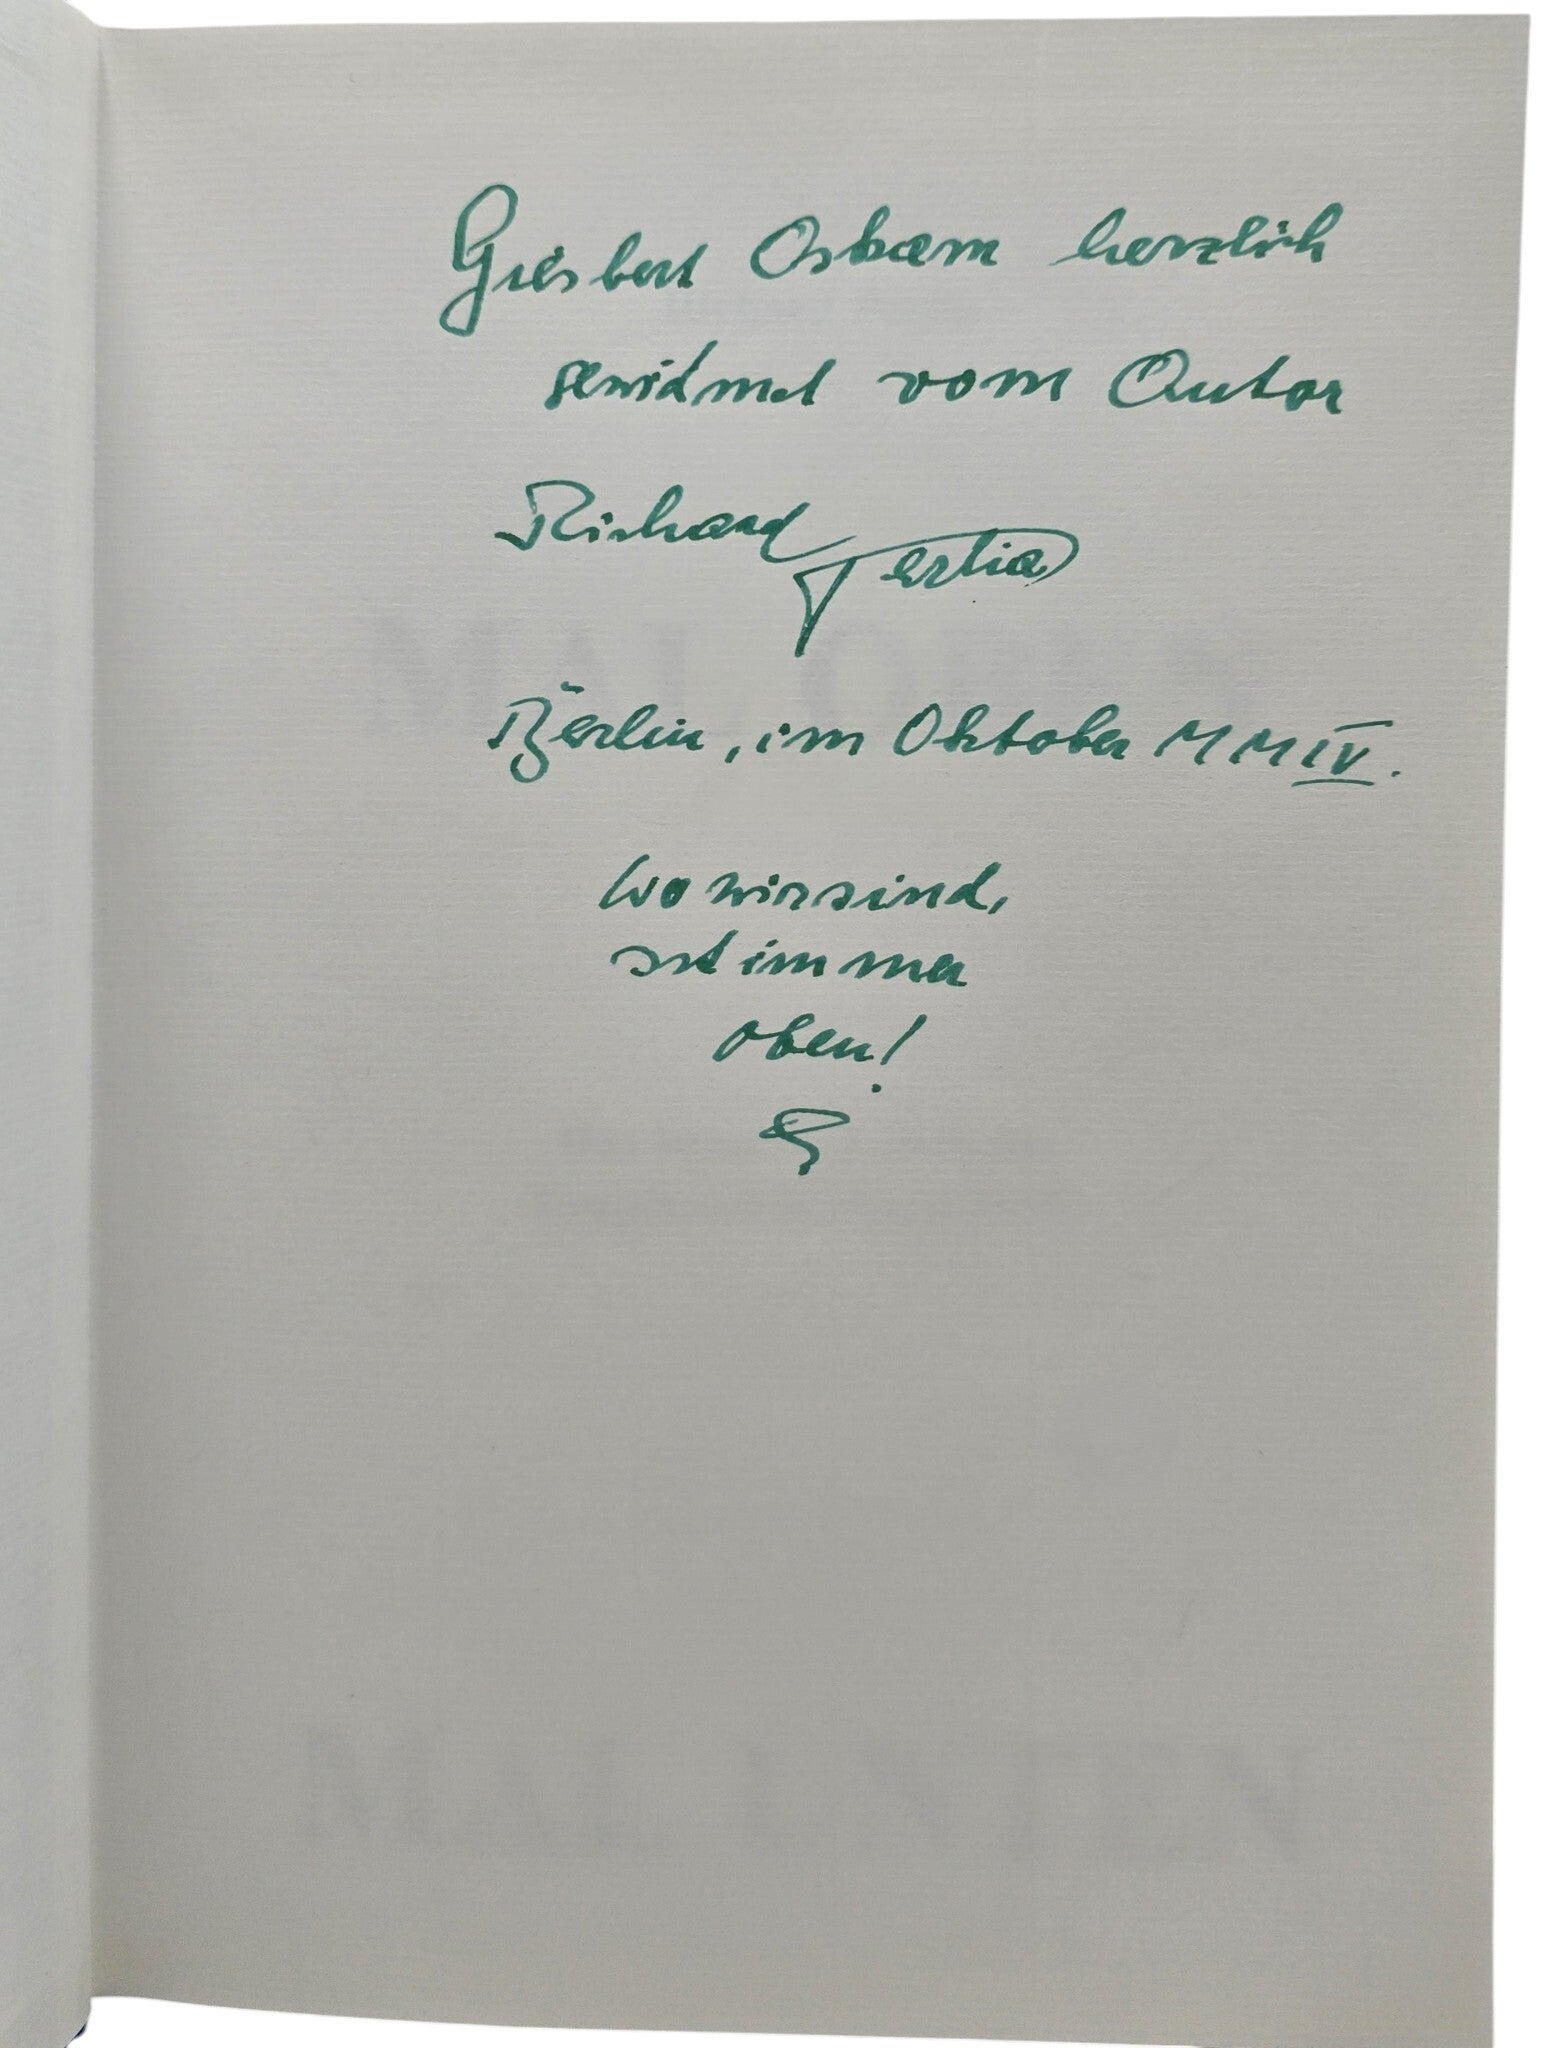 Giesbert Oskam herzlich
gewidmet vom Autor
Richard Tertia
Berlin, im Oktober MMIV.
Wo wir sind,
ist immer
oben!